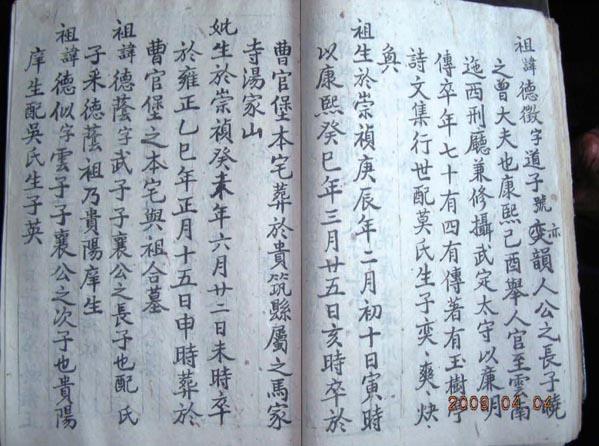 祖諱德徵字道子號亦奕韻人公之長子曉
之曾大夫也康熙己酉舉人官至雲南
迤西刑廳兼修攝武定太守以廉明
傳卒年七十有四有傳著有玉樹亭
詩文集行世配莫氏生子奕、爽、炔、
奐
祖生於崇禎庚辰年二月初十日寅時
以康熙癸巳年三月廿五日亥時卒於
曹官堡本宅葬於貴筑縣屬之馬家
寺湯家山
妣生於崇禎癸未年六月廿二日未時卒
於雍正乙巳年正月十五日申時葬於
曹官堡之本宅與祖合墓
祖諱德蔭字武子子襄公之長子也配 氏
子釆德蔭祖乃貴陽庠生
祖諱德似字雲子子襄公之次子也貴陽
庠生配吳氏生子英
2009.04.04